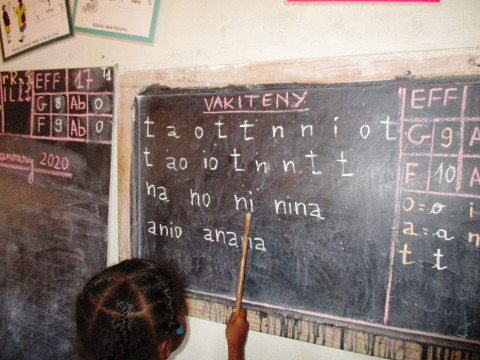 EFF 17
G 8 Ab 0
F 9 Ab 0
January 2020
VAKITENY
t a o t t n n i o t
t ao io t n n t t
na no ni nina
anio anana
EFF
G 9 A
F 10 A
o = o i
a = a n
t t